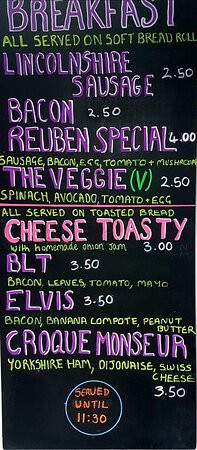 BREAKFAST
ALL SERVED ON SOFT BREAD ROLL
LINCOLNSHIRE
SAUSAGE 2.50
BACON 2.50
REUBEN SPECIAL 4.00
SAUSAGE, BACON, EGG, TOMATO + MUSHROOM
THE VEGGIE (V) 2.50
SPINACH, AVOCADO, TOMATO + EGG
ALL SERVED ON TOASTED BREAD
CHEESE TOASTY
with homemade onion jam 3.00
BLT 3.50
BACON, LEAVES, TOMATO, MAYO
ELVIS 3.50
BACON, BANANA COMPOTE, PEANUT
BUTTER
CROQUE MONSEUR
YORKSHIRE HAM, DIJONAISE, SWISS
CHEESE
3.50
SERVED
UNTIL
11:30